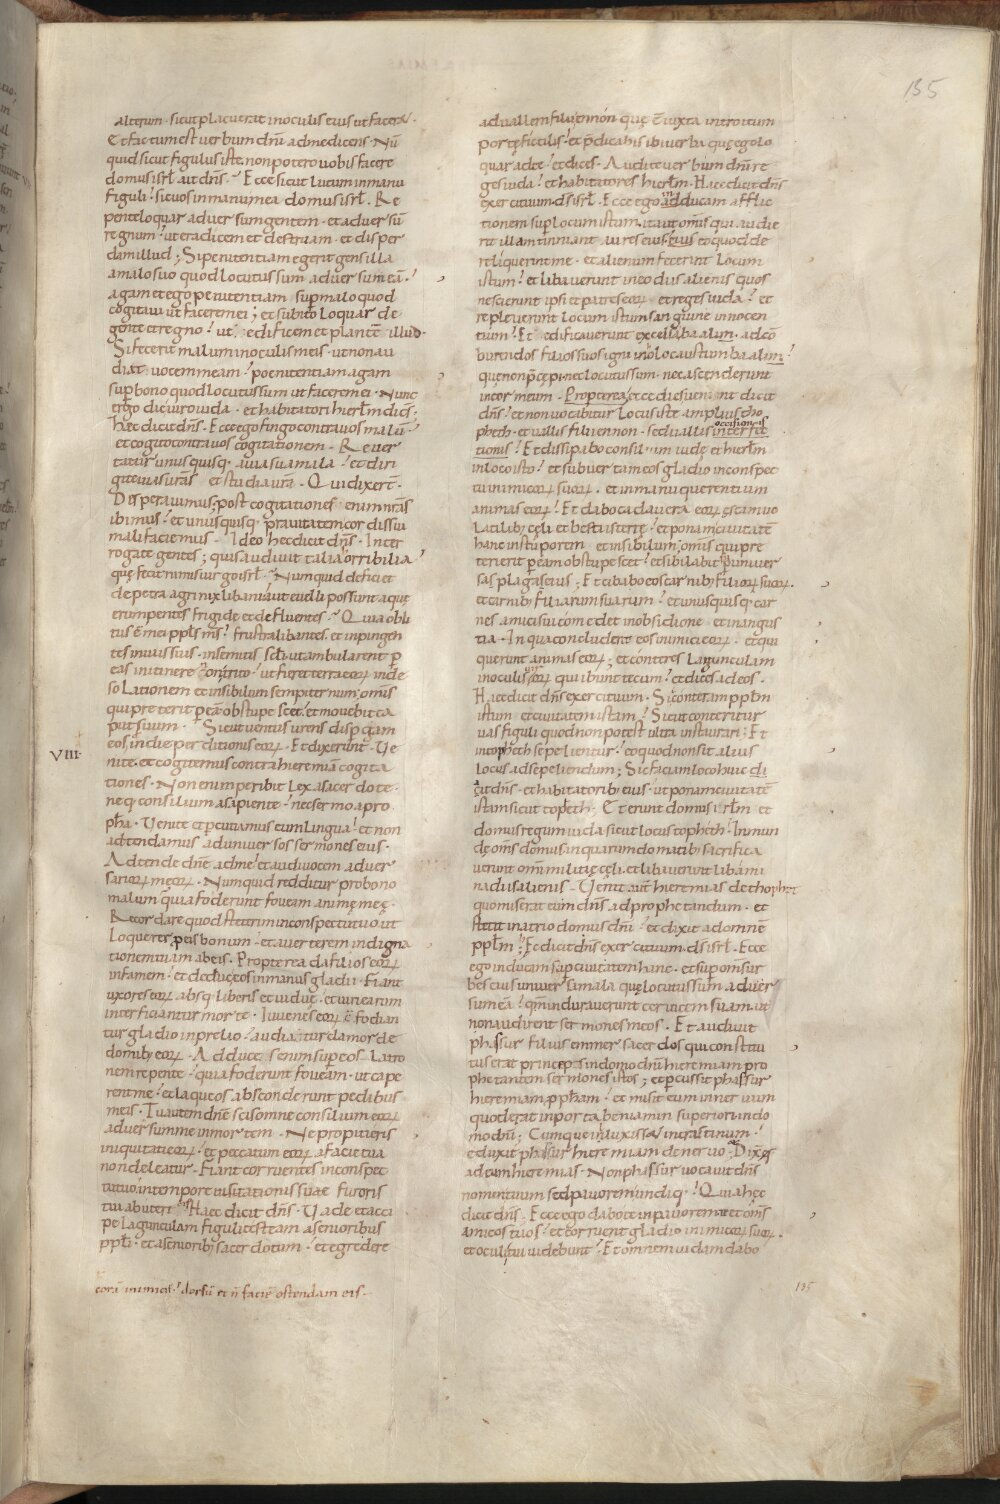 135
alterum · sicut placuerat in oculis eius ut faceret ·
Et factum est verbum dñi ad me dicens · Nũ
quid sicut figulus iste non potero vobis facere
domus isrl̃ · ait dñs · Ecce sicut lutum in manu
figuli · sic vos in manu mea domus isrl̃ · Re
pente loquar adversum gentem · et adversũ
regnum · ut eradicem et destruam · et disper
dam illud ; Si penitentiam egerit gens illa
a malo suo quod locutus sum adversum eã ·
agam et ego penitentiam sup malo quod
cogitavi ut facerem ei ; et subito loquar de
gente et regno · ut edificem et plantẽ illud ·
Si fecerit malum in oculis meis · ut non au
diat vocem meam · poenitentiam agam
sup bono quod locutus sum ut facerem ei · Nunc
ergo dic viro iuda · et habitatori hierl̃m dicẽs ·
hec dicit dñs · Ecce ego fingo contra vos malũ ·
et cogito contra vos cogitationem · Rever
tatur unusquisq · a via sua mala · et diri
gite vias vr̃as et studia vr̃a · Qui dixert̃ ·
Desperavimus ; post cogitationes enim nr̃as
ibimus · et unusquisq · pravitatem cordis sui
mali faciemus · Ideo hec dicit dñs · Inter
rogate gentes ; quis audivit talia orribilia ·
quę fecit nimis virgo isrl̃ · Numquid deficiet
de petra agri nix libani · aut evelli possunt aquę
erumpentes frigidę et defluentes · Quia obli
tus ẽ mei ppl̃s m̃s · frustra libantes · et inpingen
tes in viis suis · in semitis sc̃li ut ambularent p
eas in itinere non trito · ut fieret terra eoꝝ in de
solationem et in sibilum sempiternum ; omis
qui preterit p eã obstupescet · et movebit ca
put suum · Sicut ventus urens dispgam
eos in die perditionis eoꝝ · Et dixerunt · Ve
VIII·
nite · et cogitemus contra hieremiã cogita
tiones · Non enim peribit lex a sacerdote ·
neq consilium a sapiente · nec sermo a pro
ph̃a · Venite et pcutiamus eum lingua · et non
adtendamus ad universos sermones eius ·
Adtende dñe ad me · et audi vocem adver
sarioꝝ meoꝝ · Numquid redditur pro bono
malum quia foderunt foveam animę meę ·
Recordare quod steterim in conspectu tuo ut
loquerer p eis bonum · et averterem indigna
tionem tuam ab eis · Propterea da filios eoꝝ
in famem · et deduc eos in manus gladii · Fiant
uxores eoꝝ absq liberis et viduę · et viri earum
interficiantur morte · Iuvenes eoꝝ cõfodian
tur gladio in prelio · audiatur clamor de
domib; eoꝝ · Adduces enim sup eos latro
nem repente · quia foderunt foveam · ut cape
rent me · et laqueos absconderunt pedibus
meis · Tu autem dñe scis omne consilium eoꝝ
adversum me in mortem · Ne propitieris
iniquitati eoꝝ · et peccatum eoꝝ a facie tua
non deleatur · Fiant corruentes in conspec
tu tuo · in tempore visitationis tuae furoris
tui abutere · Haec dicit dñs · Vade et acci
pe lagunculam figuli testeam a senioribus
ppl̃i · et a seniorib; sacerdotum · et egredere
eorũ inimico · dorsũ et ñ faciẽ ostendam eis ·
ad vallem filii ennon quę ẽ iuxta introitum
portę fictilis · et p̃dicabis ibi verba quę ego lo
quar ad te · et dices · Audite verbum dñi re
ges iuda · et habitatores hierl̃m · Haec dicit dñs
exercituum d̃s isrl̃ · Ecce ego inducam afflic
tionem sup locum istum · ita ut omis qui audie
rit illam tinniant aures eius · eo quod de
reliquerint me · et alienum fecerint locum
istum · et libaverunt in eo diis alienis quos
nescierunt ipsi et patres eoꝝ · et reges iuda · et
repleverunt locum istum sanguine innocen
tium · Et edificaverunt excelsa baalim · ad cõ
burendos filios suos igni in holocaustum baalim ·
quę non p̃cępi · nec locutus sum · nec ascenderunt
in cor meum · Propterea ecce dies veniunt dicit
dñs · et non vocabitur locus iste amplius tho
pheth · et vallis filii ennon · sed vallis interfec
occisionis
tionis · Et dissipabo consilium iudę et hierl̃m
in loco isto · et subvertam eos gladio in conspec
tu inimicoꝝ suoꝝ · et in manu querentium
animas eoꝝ · Et dabo cadavera eoꝝ escam vo
latilib; cęli et bestiis terrę · et ponam civitatẽ
hanc in stuporem · et in sibilum ; omis qui pre
terierit p eam obstupescet · et sibilabit sup univer
sas plagas eius ; Et cibabo eos carnib; filioꝝ suoꝝ ·
et carnib; filiarum suarum · et unusquisq; car
nes amici sui comedet in obsidione · et in angus
tia · In qua concludent eos inimici eoꝝ · et qui
querunt animas eoꝝ ; et conteres lagunculam
in oculis viroꝝ qui ibunt tecum · et dices ad eos ·
Haec dicit dñs exercituum · Sic conteram ppl̃m
istum · et civitatem istam · Sicut conteritur
vas figuli quod non potest ultra instaurari · Et
in topheth sepelientur · eo quod non sit alius
locus ad sepeliendum ; Sic faciam loco huic di
cit dñs · et habitatorib; eius · ut ponam civitatẽ
istam sicut topeth · Et erunt domus ierl̃m et
domus regum iuda sicut locus topheth · Inmun
dę om̃s domus in quarum domatib; sacrifica
verunt omĩ militię cęli · et libaverunt libami
na diis alienis · Venit aut̃ hieremias de thophet
quo miserat eum dñs ad prophetandum · et
stetit in atrio domus dñi · et dixit ad omnẽ
ppl̃m · Hęc dicit dñs exercituum d̃s isrl̃ · Ecce
ego inducam sup civitatem hanc · et sup om̃s ur
bes eius universa mala quę locutus sum adver
sum eã · qm̃ induraverunt cervicem suam · ut
non audirent sermones meos · Et audivit
phassur filius emmer sacerdos qui constitu
tus erat princeps in domo dñi hieremiam pro
phetantem sermones istos ; et pcussit phassur
hieremiam pph̃am · et misit eum in nervum
quod erat in porta beniamin superiori in do
mo dñi ; Cumque inluxisset in crastinum ·
eduxit phassur hieremiam de nervo ; Dixit
ad eum hieremias · Non phassur vocavit dñs
nomen tuum sed pavorem undiq · Quia hęc
dicit dñs · Ecce ego dabo te in pavorem te et om̃s
amicos tuos · et corruent gladio inimicoꝝ suoꝝ ·
et oculi tui videbunt · Et omnem iudam dabo
135